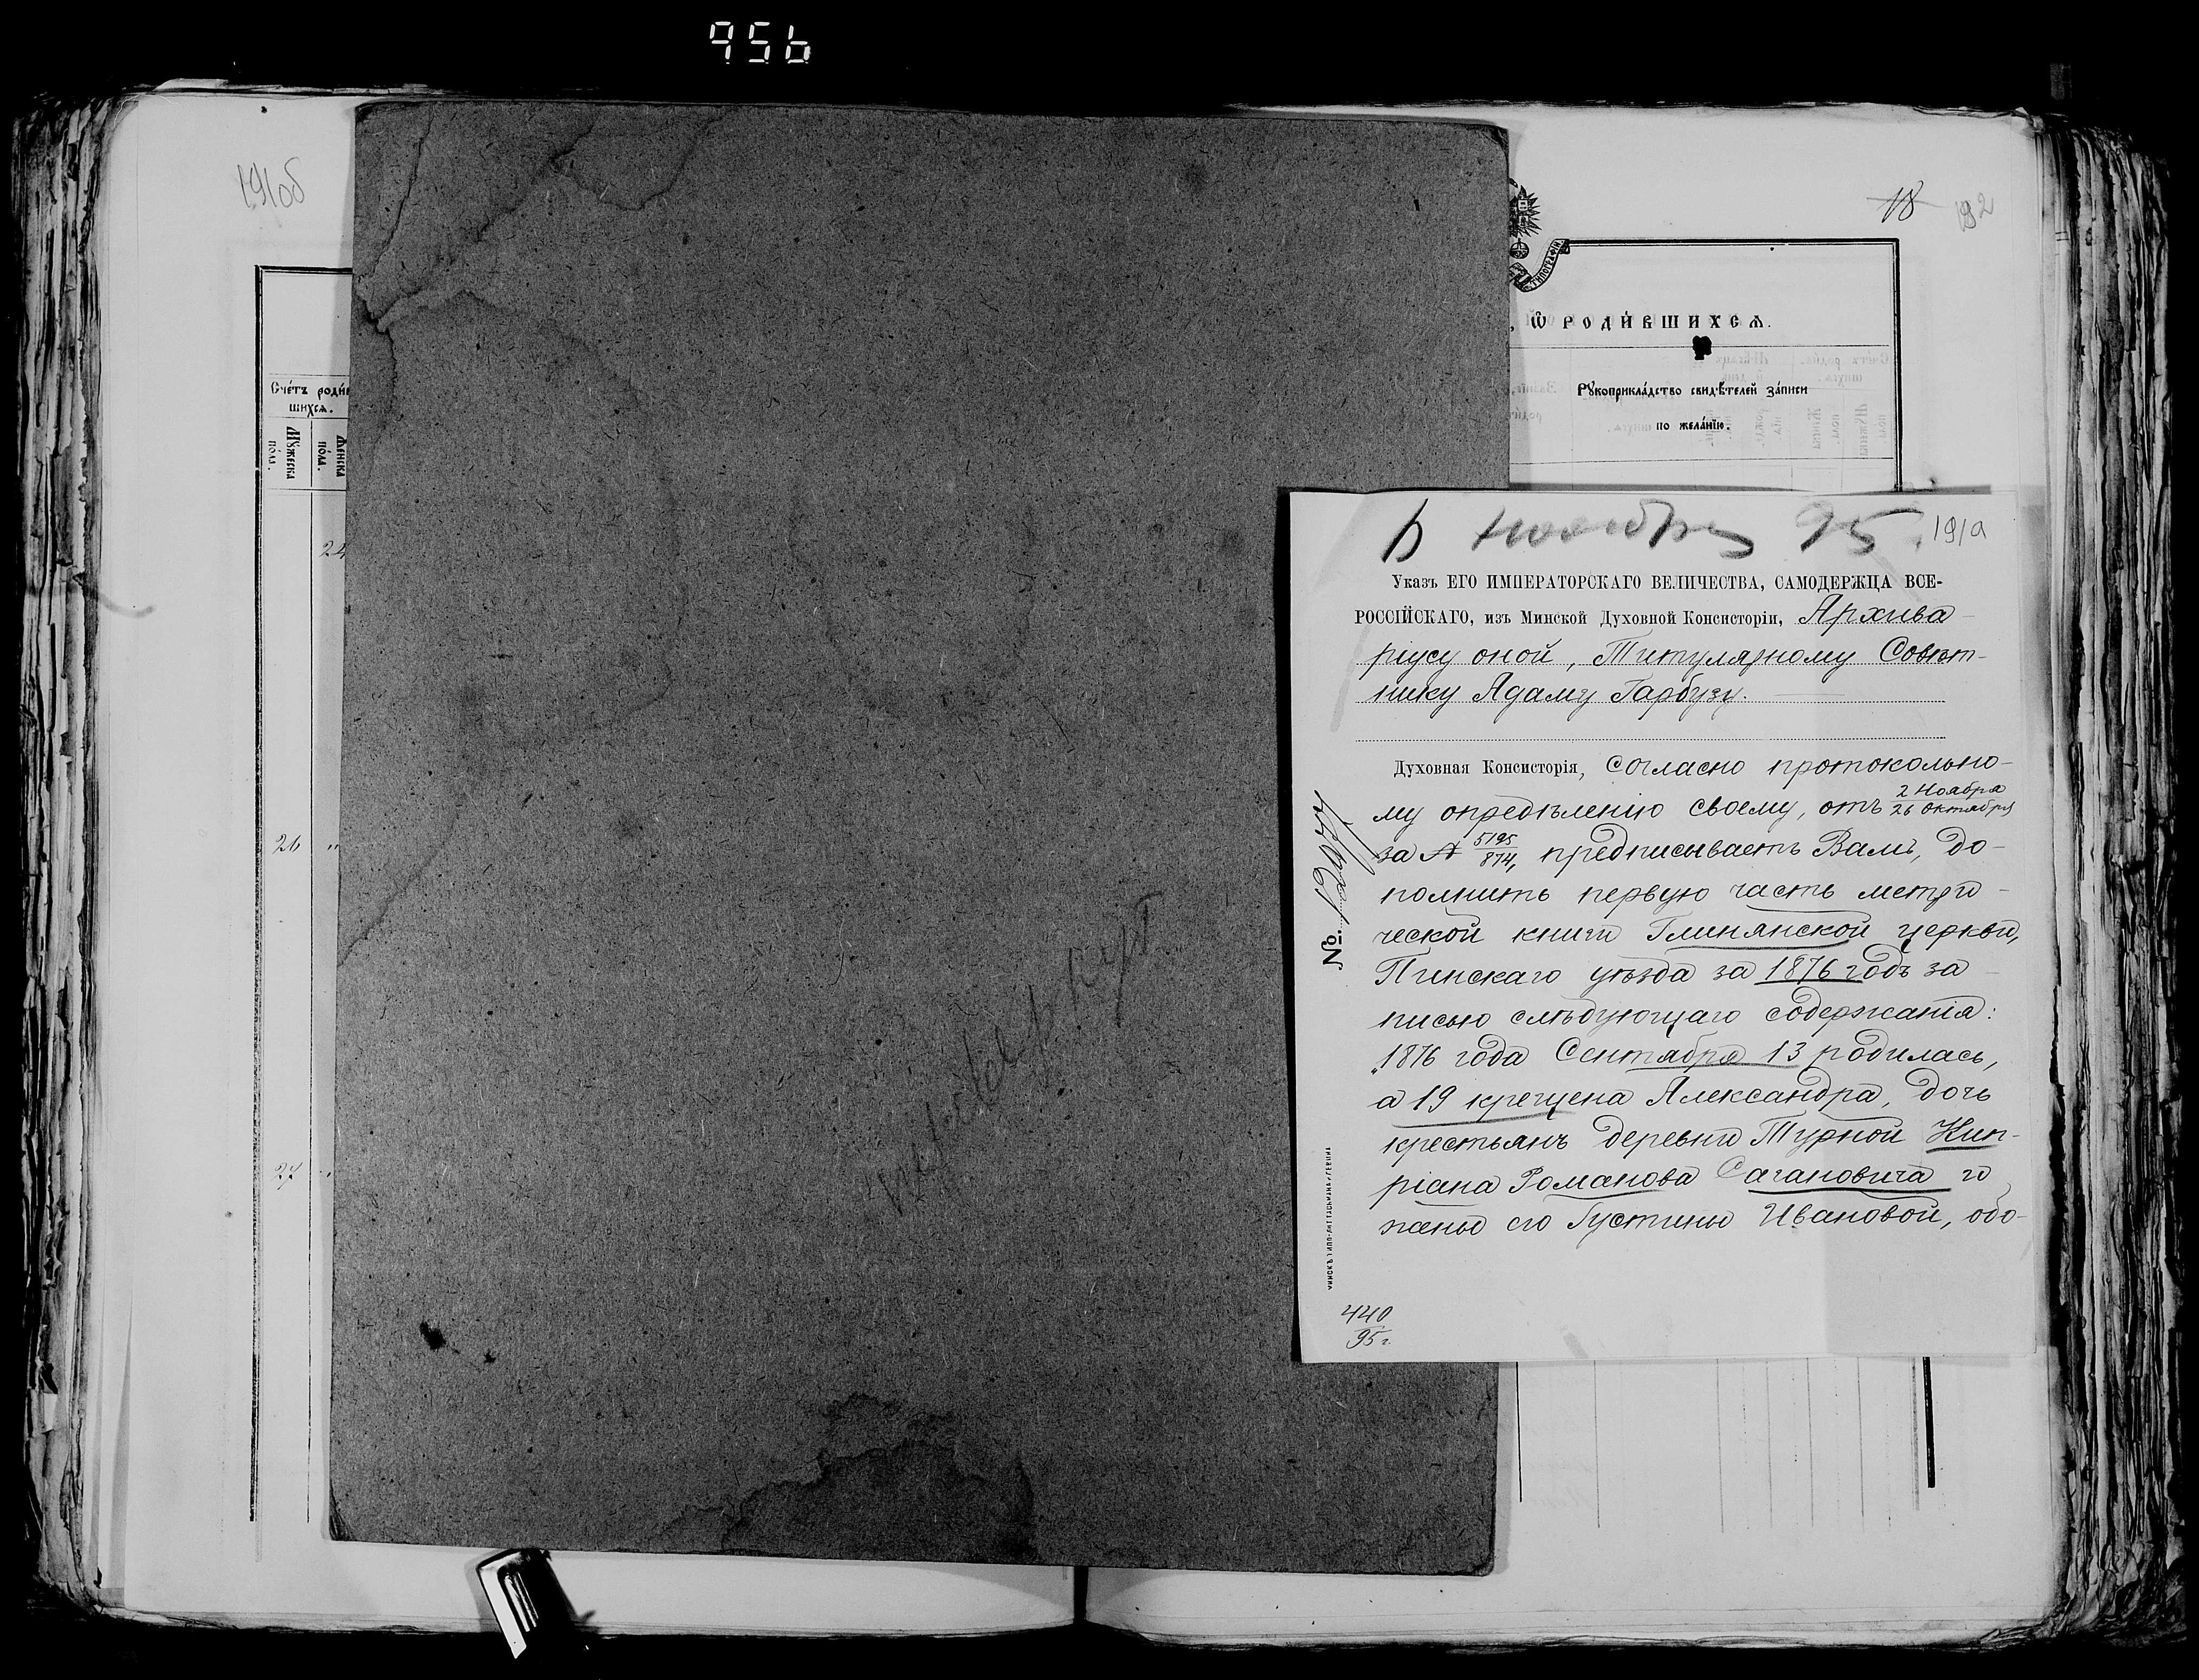 956
191об
Счéтъ роди́в
шихсѧ.
Мꙋжеска
по́ла.
Женска
по́ла.
24
26
27
18 192
ТИПОГРАФІИ
, ѽ РОДИ́ВШИХСѦ.
Рꙋкоприкла́дство свидѣ́телей за́писи
по жела́нїю.
6 ноября 95. 191а
Указъ ЕГО ИМПЕРАТОРСКАГО ВЕЛИЧЕСТВА, САМОДЕРЖЦА ВСЕ-
РОССІЙСКАГО, изъ Минской Духовной Консисторіи, Архива-
ріусу оной, Титулярному Совѣт-
нику Адаму Гарбузу.
Духовная Консисторія, согласно протокольно-
му опредѣленію своему, отъ 2 Ноября
26 Октября
за № 5195/874, предписываетъ Вамъ, до-
полнить первую часть метри-
ческой книги Глинянской церкви,
Пинскаго уѣзда за 1876 годъ за-
писью слѣдующаго содержанія:
„1876 года Сентября 13 родилась,
а 19 крещена Александра, дочь
крестьянъ деревни Турной Кип-
ріана Романова Сагановича и
жены его Густины Ивановой, обо-
№
440
95 г.